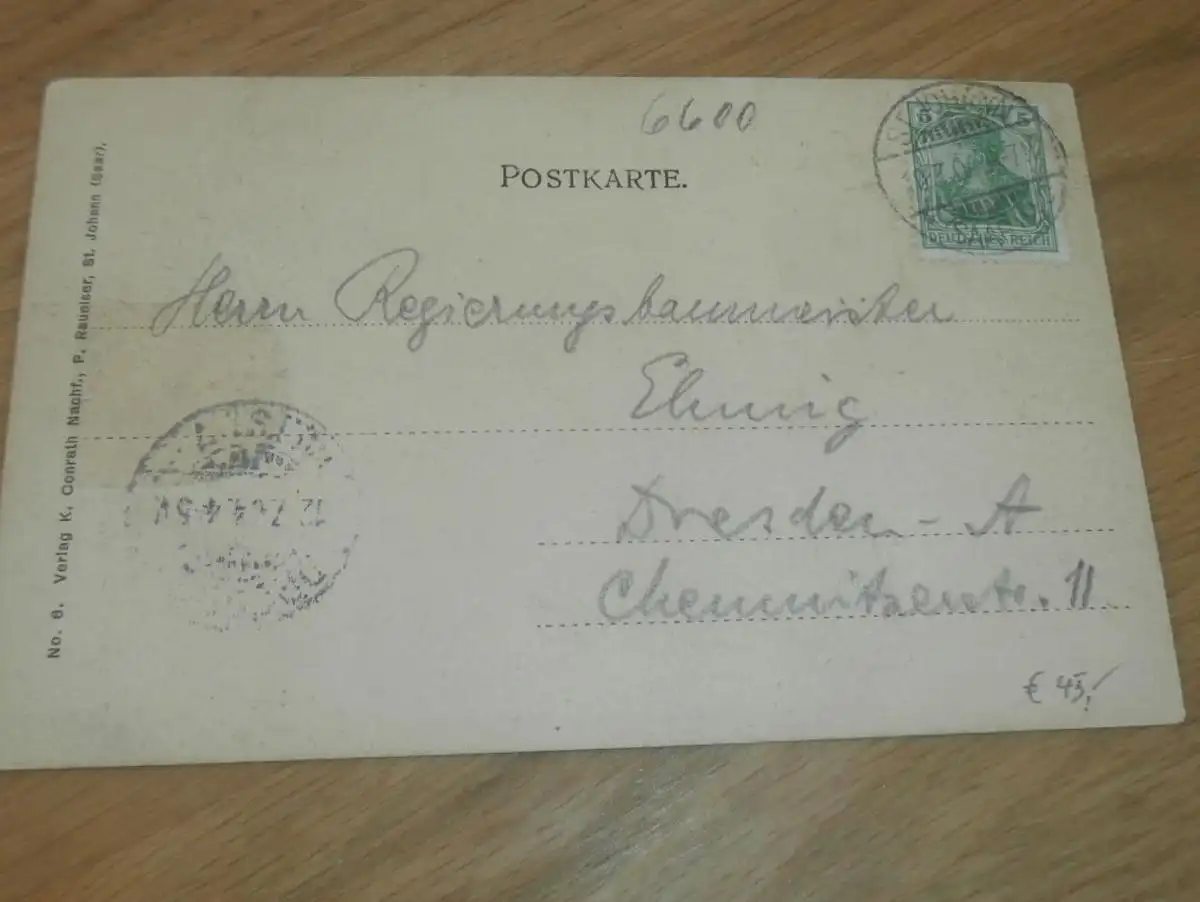 6600
POSTKARTE.
5 5
DEUTSCHES REICH
Herrn Regierungsbaumeister
Ehmig
Dresden - A
Chemnitzerstr. 11
€ 45,-
No. 6. Verlag K. Conrath Nachf., P. Raueiser, St. Johann (Saar).